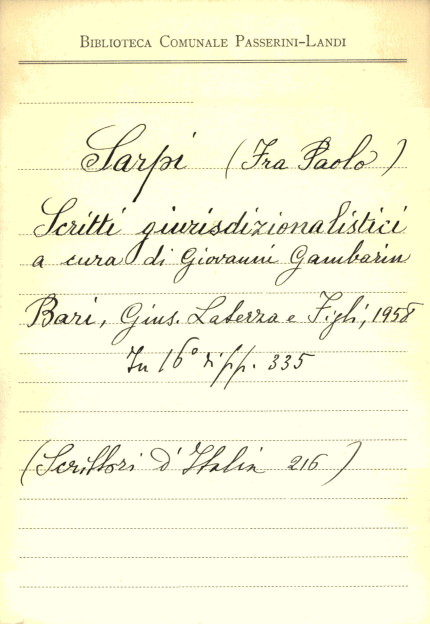 BIBLIOTECA COMUNALE PASSERINI-LANDI
Sarpi (Fra Paolo)
Scritti giurisdizionalistici
a cura di Giovanni Gambarin
Bari, Gius. Laterza e Figli, 1958
In 16° di pp. 335
(Scrittori d'Italia 216)